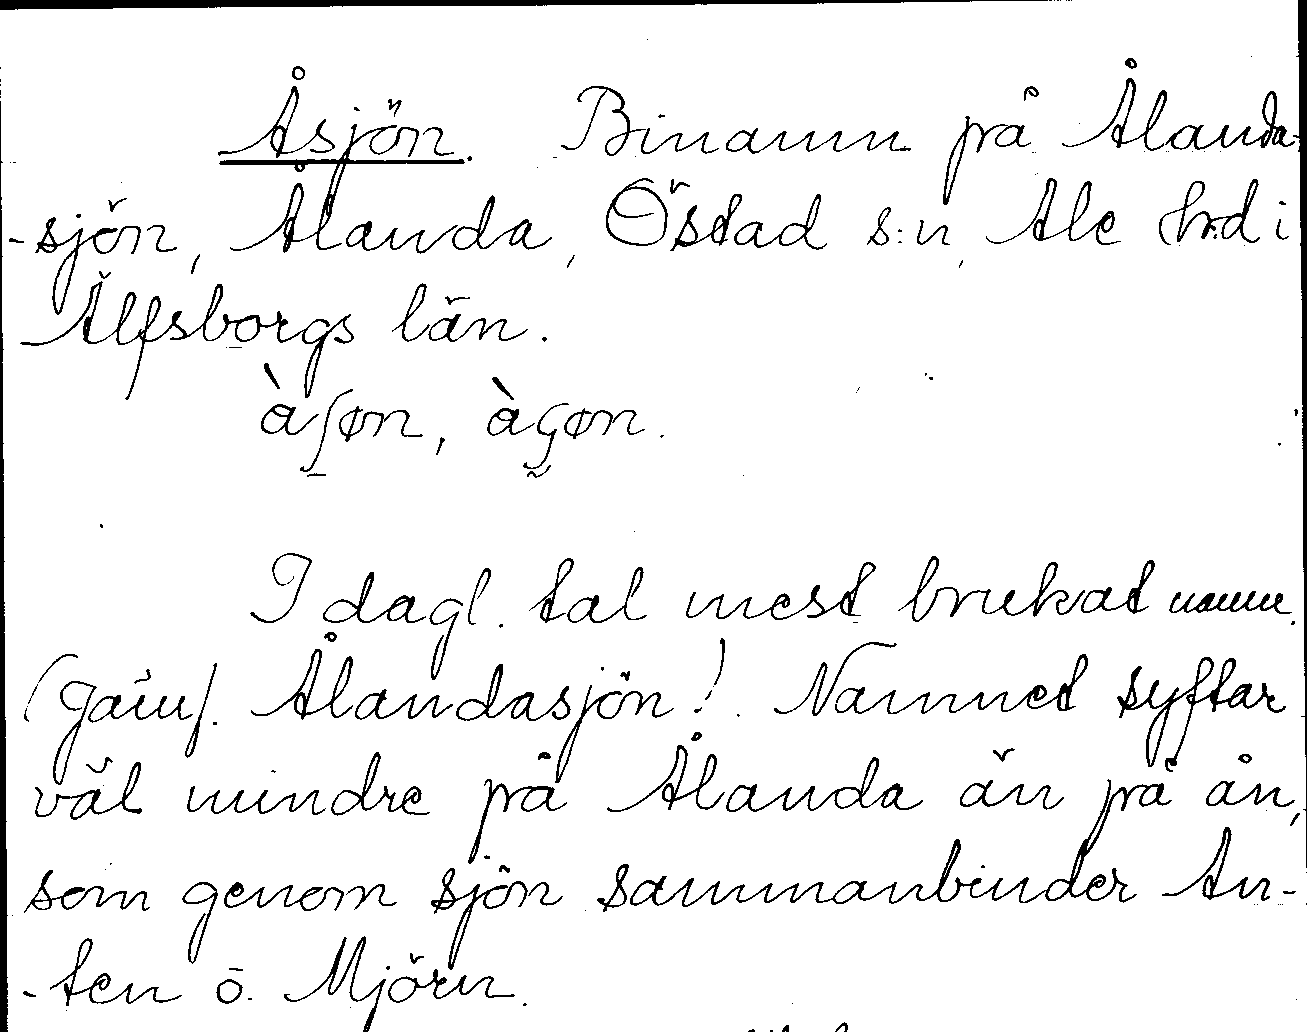 Åsjön. Binamn på Ålanda-
-sjön, Ålanda, Östad s:n, Ale hd i
Älfsborgs län.
àʃøn, àçøn.
I dagl. tal mest brukat namn.
(jämf. Ålandasjön!). Namnet syftar
väl mindre på Ålanda än på ån,
som genom sjön sammanbinder An-
-ten o. Mjörn.